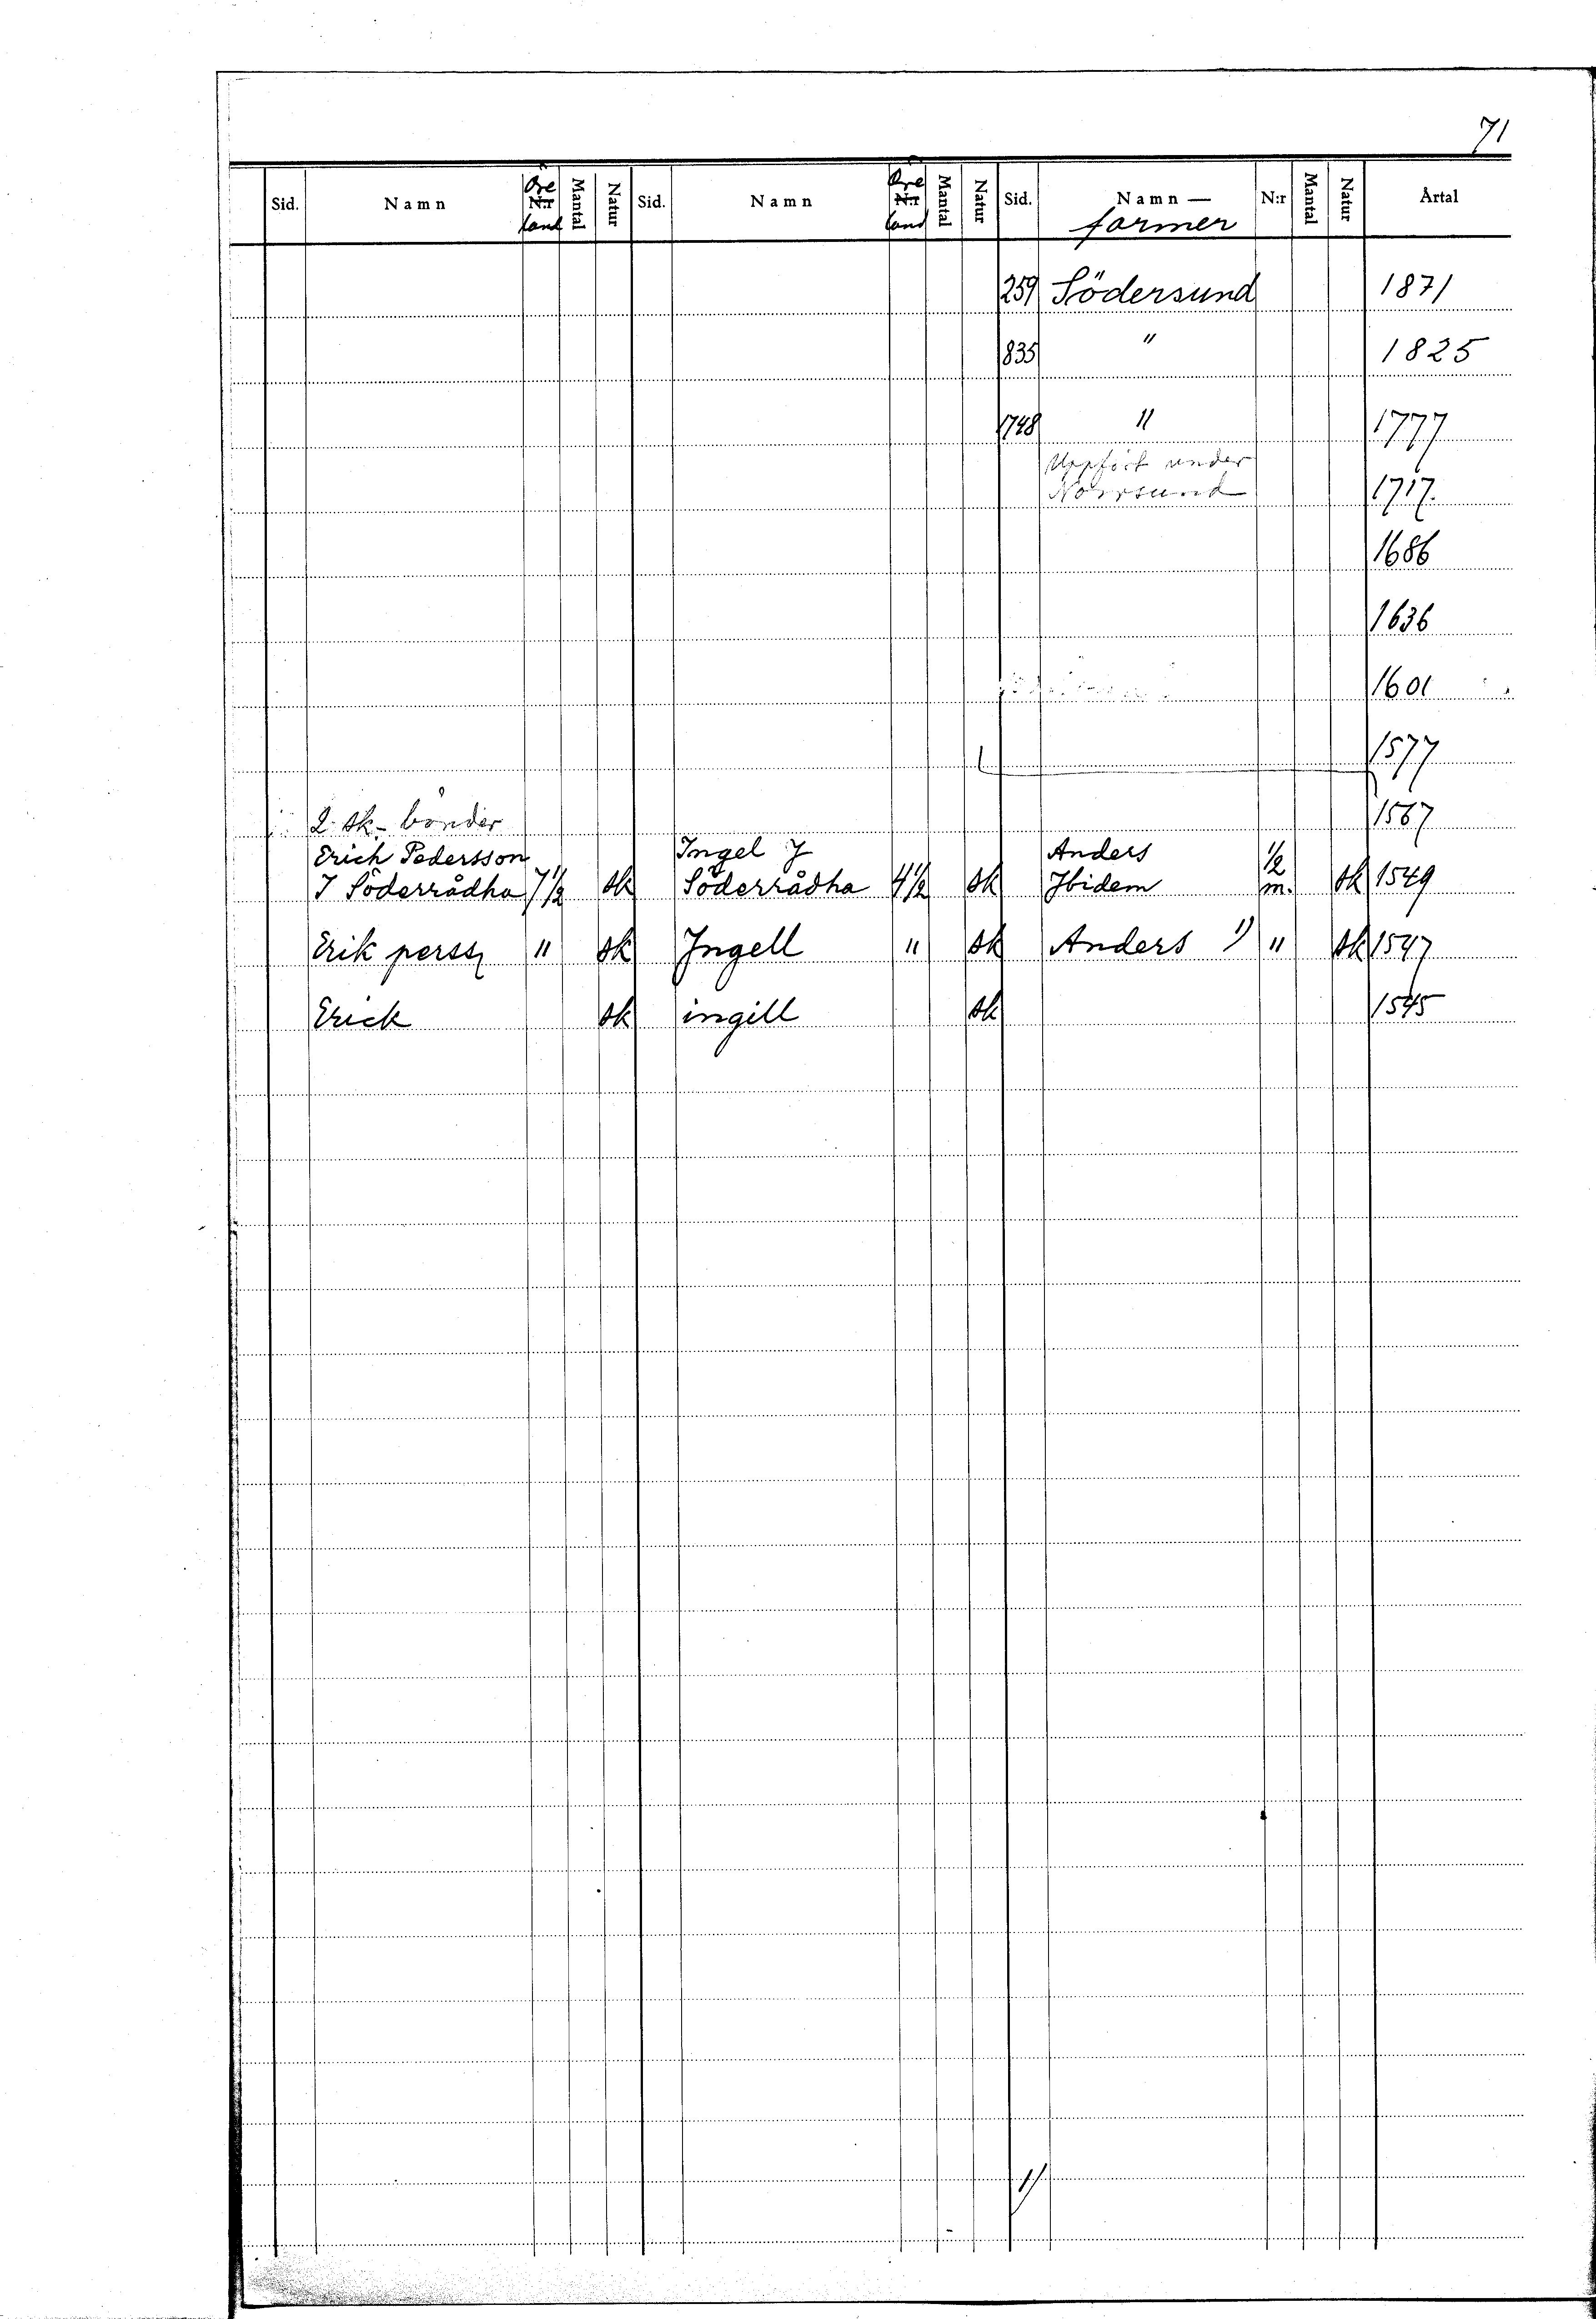 71
Sid. Namn Öre N:r land Mantal Natur Sid. Namn Öre N:r land Mantal Natur Sid. Namn — former N:r Mantal Natur Årtal
259 Södersund 1871
835 " 1825
1748 " 1777
Uppfört under
Norrsund 1717.
1686
1636
1601
1577
2 sk. bönder 1567
Erich Pedersson Ingel J Anders 1/2
J Söderrådha 7 1/2 sk Söderrådha 4 1/2 sk Jbidem m. sk 1549
Erik perss " sk Jngell " sk Anders 1) " sk 1547
Erick sk ingill sk 1545
1)